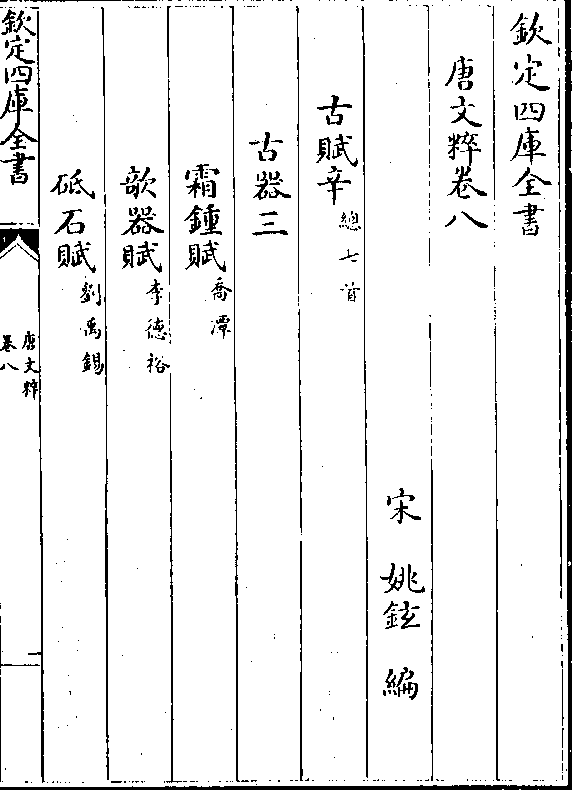 欽定四庫全書
唐文粹卷八
宋 姚鉉 編
古賦辛 總七首
古器三
霜鍾賦 喬潭
欹器賦 李德裕
砥石賦 劉禹錫
欽定四庫全書
唐文粹
卷八
一